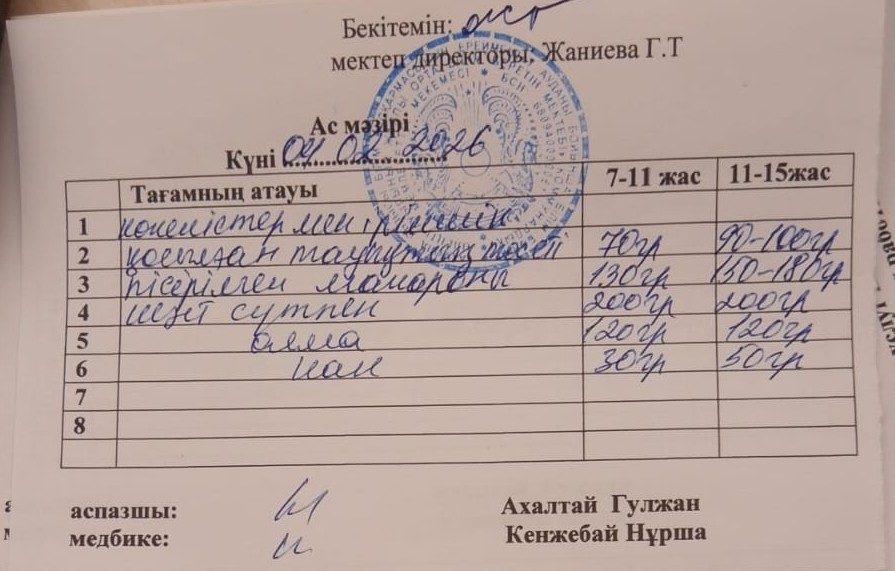 Бекітемін:
мектеп директоры; Жаниева Г.Т
Ас мәзірі
Күні 04 02 2026
Тағамның атауы 7-11 жас 11-15жас
1 көкөністермен ірімшік
2 қосылған тауықтың төсі 70гр 90-100гр
3 пісірілген макароны 130гр 150-180гр
4 сүтпен 200гр 200гр
5 алма 120гр 120гр
6 нан 30гр 50гр
7
8
аспазшы: Ахалтай Гулжан
медбике: Кенжебай Нұрша